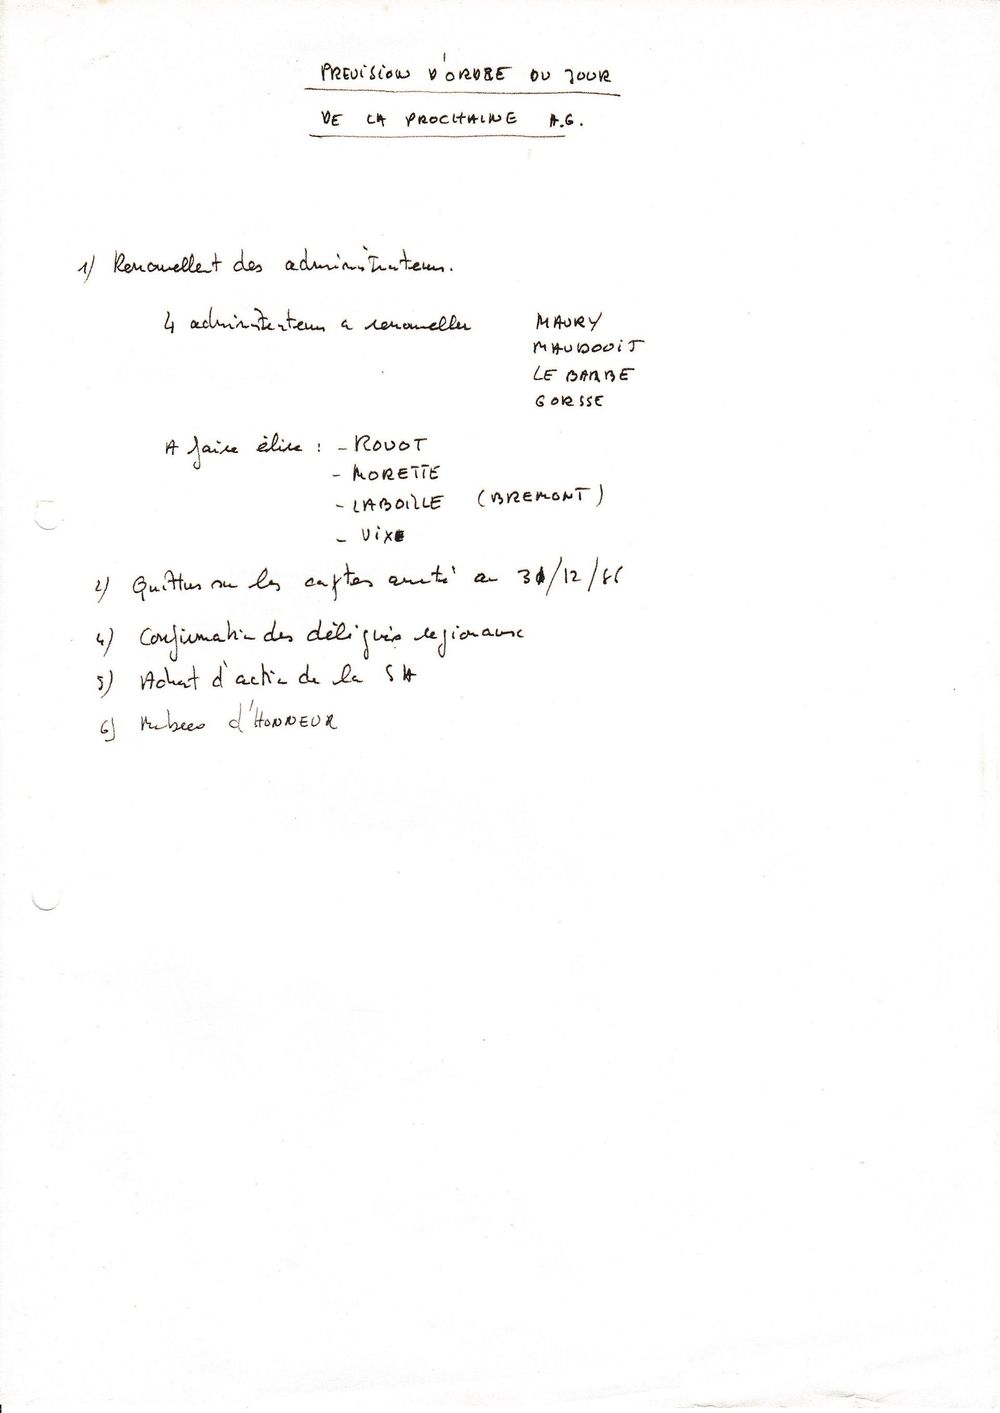 PREVISION D'ORDRE DU JOUR
DE LA PROCHAINE A.G.
1) Renouvellent des administrateurs.
4 administrateurs a renouveller MAURY
MAUDOUIT
LE BARBE
GORSSE
A faire élire : - ROUOT
- MORETTE
- LABOILLE (BREMONT)
- VIXE
2) Quittus sur les comptes arreté au 31/12/86
4) Confirmation des délégués regionaux
5) Achat d'action de la SA
6) Membres d'HONNEUR